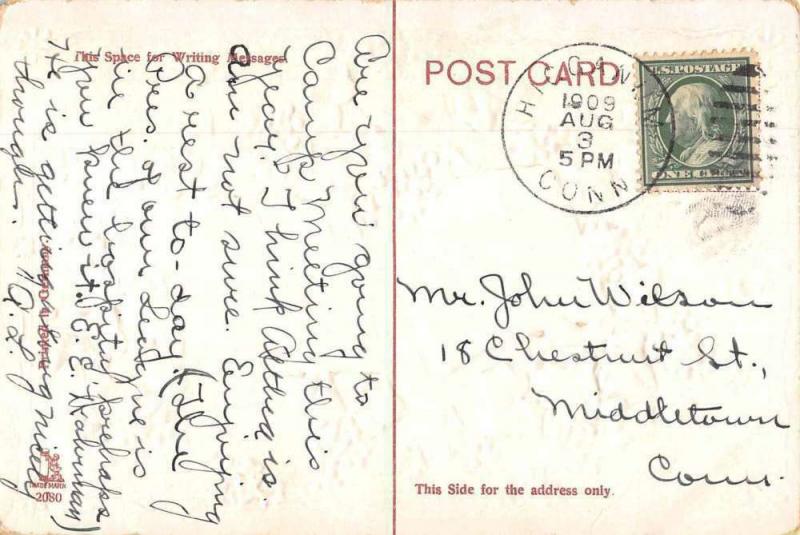 This Space for Writing Messages
Are you going to
Camp Meeting this
year? I think Althea is.
am not sure. Enjoying
a rest to-day. (The
Pres. of our League is
in the hospital prehaps
you knew it. E. E.
He is getting along nicely
though. "A. L."
TRADE MARK
2080
POST CARD
CONN
1909
AUG
3
5 PM
U.S. POSTAGE
ONE CENT
Mr. John Wilson
18 Chestnut St.,
Middletown
Conn.
This Side for the address only.